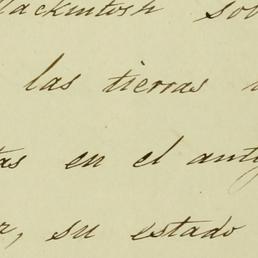 Mackintosh sob
las tierras
tas en el antig
r, su estado